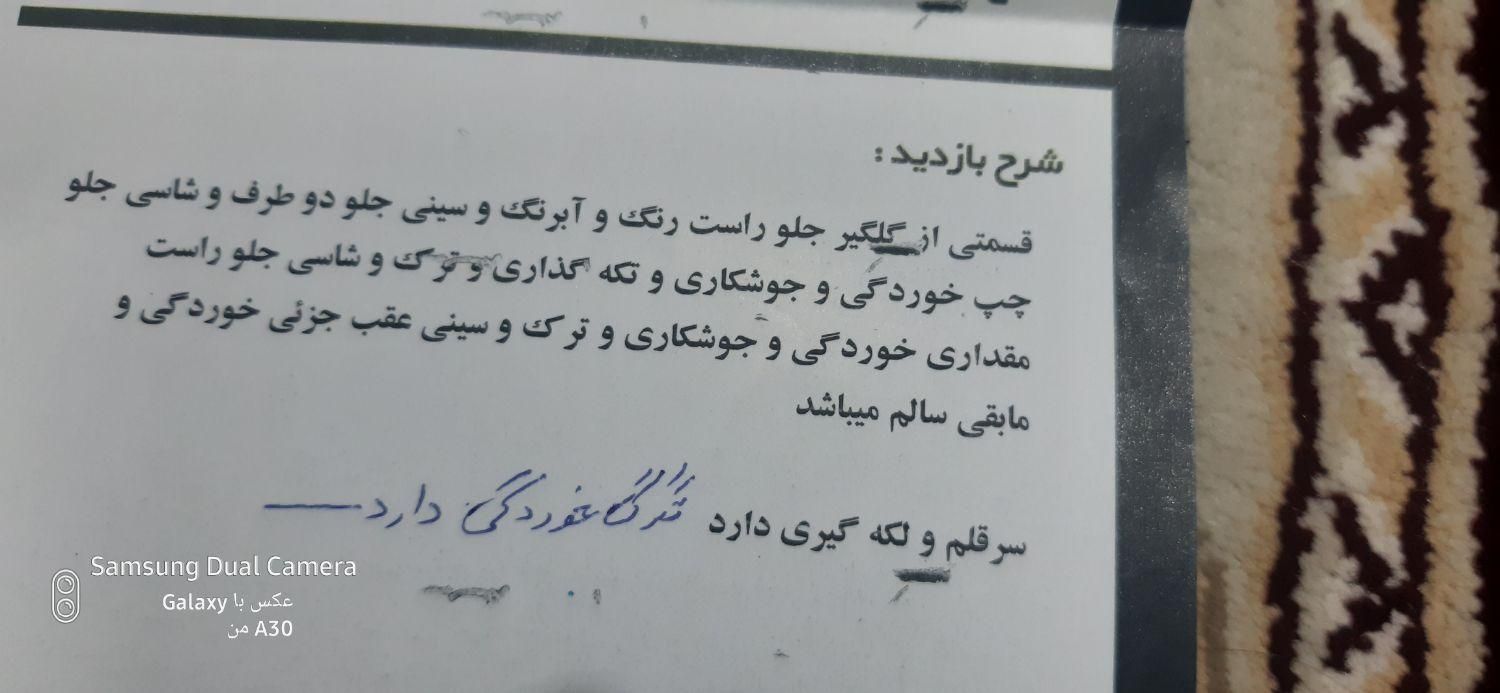 شرح بازدید :
قسمتی از گلگیر جلو راست رنگ و آبرنگ و سینی جلو دو طرف و شاسی جلو
چپ خوردگی و جوشکاری و تکه گذاری و ترک و شاسی جلو راست
مقداری خوردگی و جوشکاری و ترک و سینی عقب جزئی خوردگی و
مابقی سالم میباشد
سرقلم و لکه گیری دارد تگرگ خوردگی دارد
Samsung Dual Camera
عکس با Galaxy
A30 من